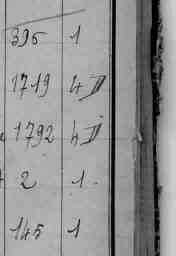 395 1
1719 4 D
1792 4 D
2 1
145 1